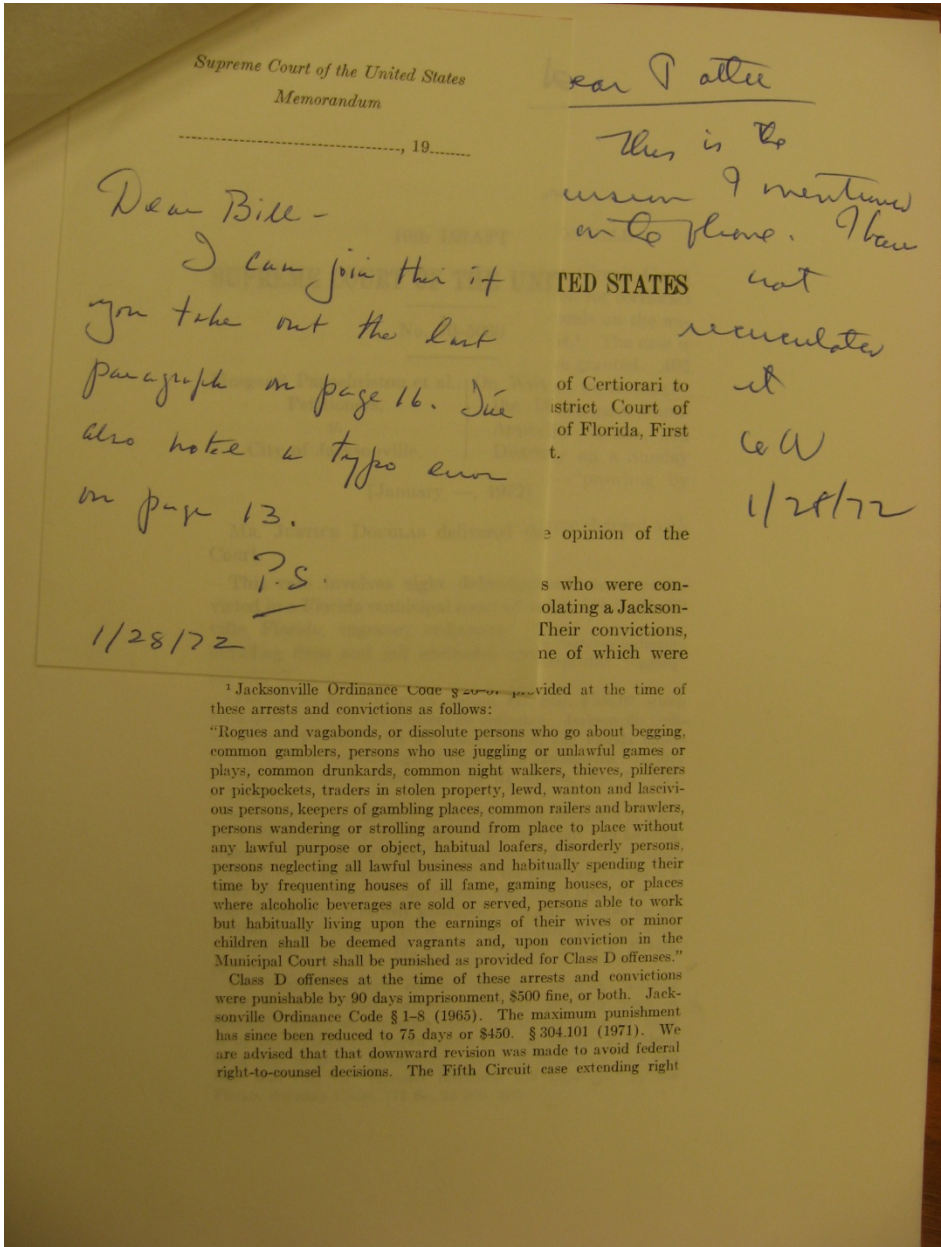 Supreme Court of the United States
Memorandum
, 19
Dear Bill -
I can join this if
you take out the last
paragraph on page 16. I've
also noted a typo error
on page 13.
P.S.
1/28/72
ear Potter
This is the
I mentioned
on the phone. I have
not
recirculated
it
1/28/72
TED STATES
of Certiorari to
istrict Court of
of Florida, First
t.
e opinion of the
s who were con-
olating a Jackson-
Their convictions,
ne of which were
¹ Jacksonville Ordinance Code § provided at the time of
these arrests and convictions as follows:
“Rogues and vagabonds, or dissolute persons who go about begging,
common gamblers, persons who use juggling or unlawful games or
plays, common drunkards, common night walkers, thieves, pilferers
or pickpockets, traders in stolen property, lewd, wanton and lascivi-
ous persons, keepers of gambling places, common railers and brawlers,
persons wandering or strolling around from place to place without
any lawful purpose or object, habitual loafers, disorderly persons,
persons neglecting all lawful business and habitually spending their
time by frequenting houses of ill fame, gaming houses, or places
where alcoholic beverages are sold or served, persons able to work
but habitually living upon the earnings of their wives or minor
children shall be deemed vagrants and, upon conviction in the
Municipal Court shall be punished as provided for Class D offenses.”
Class D offenses at the time of these arrests and convictions
were punishable by 90 days imprisonment, $500 fine, or both. Jack-
sonville Ordinance Code § 1–8 (1965). The maximum punishment
has since been reduced to 75 days or $450. § 304.101 (1971). We
are advised that that downward revision was made to avoid federal
right-to-counsel decisions. The Fifth Circuit case extending right